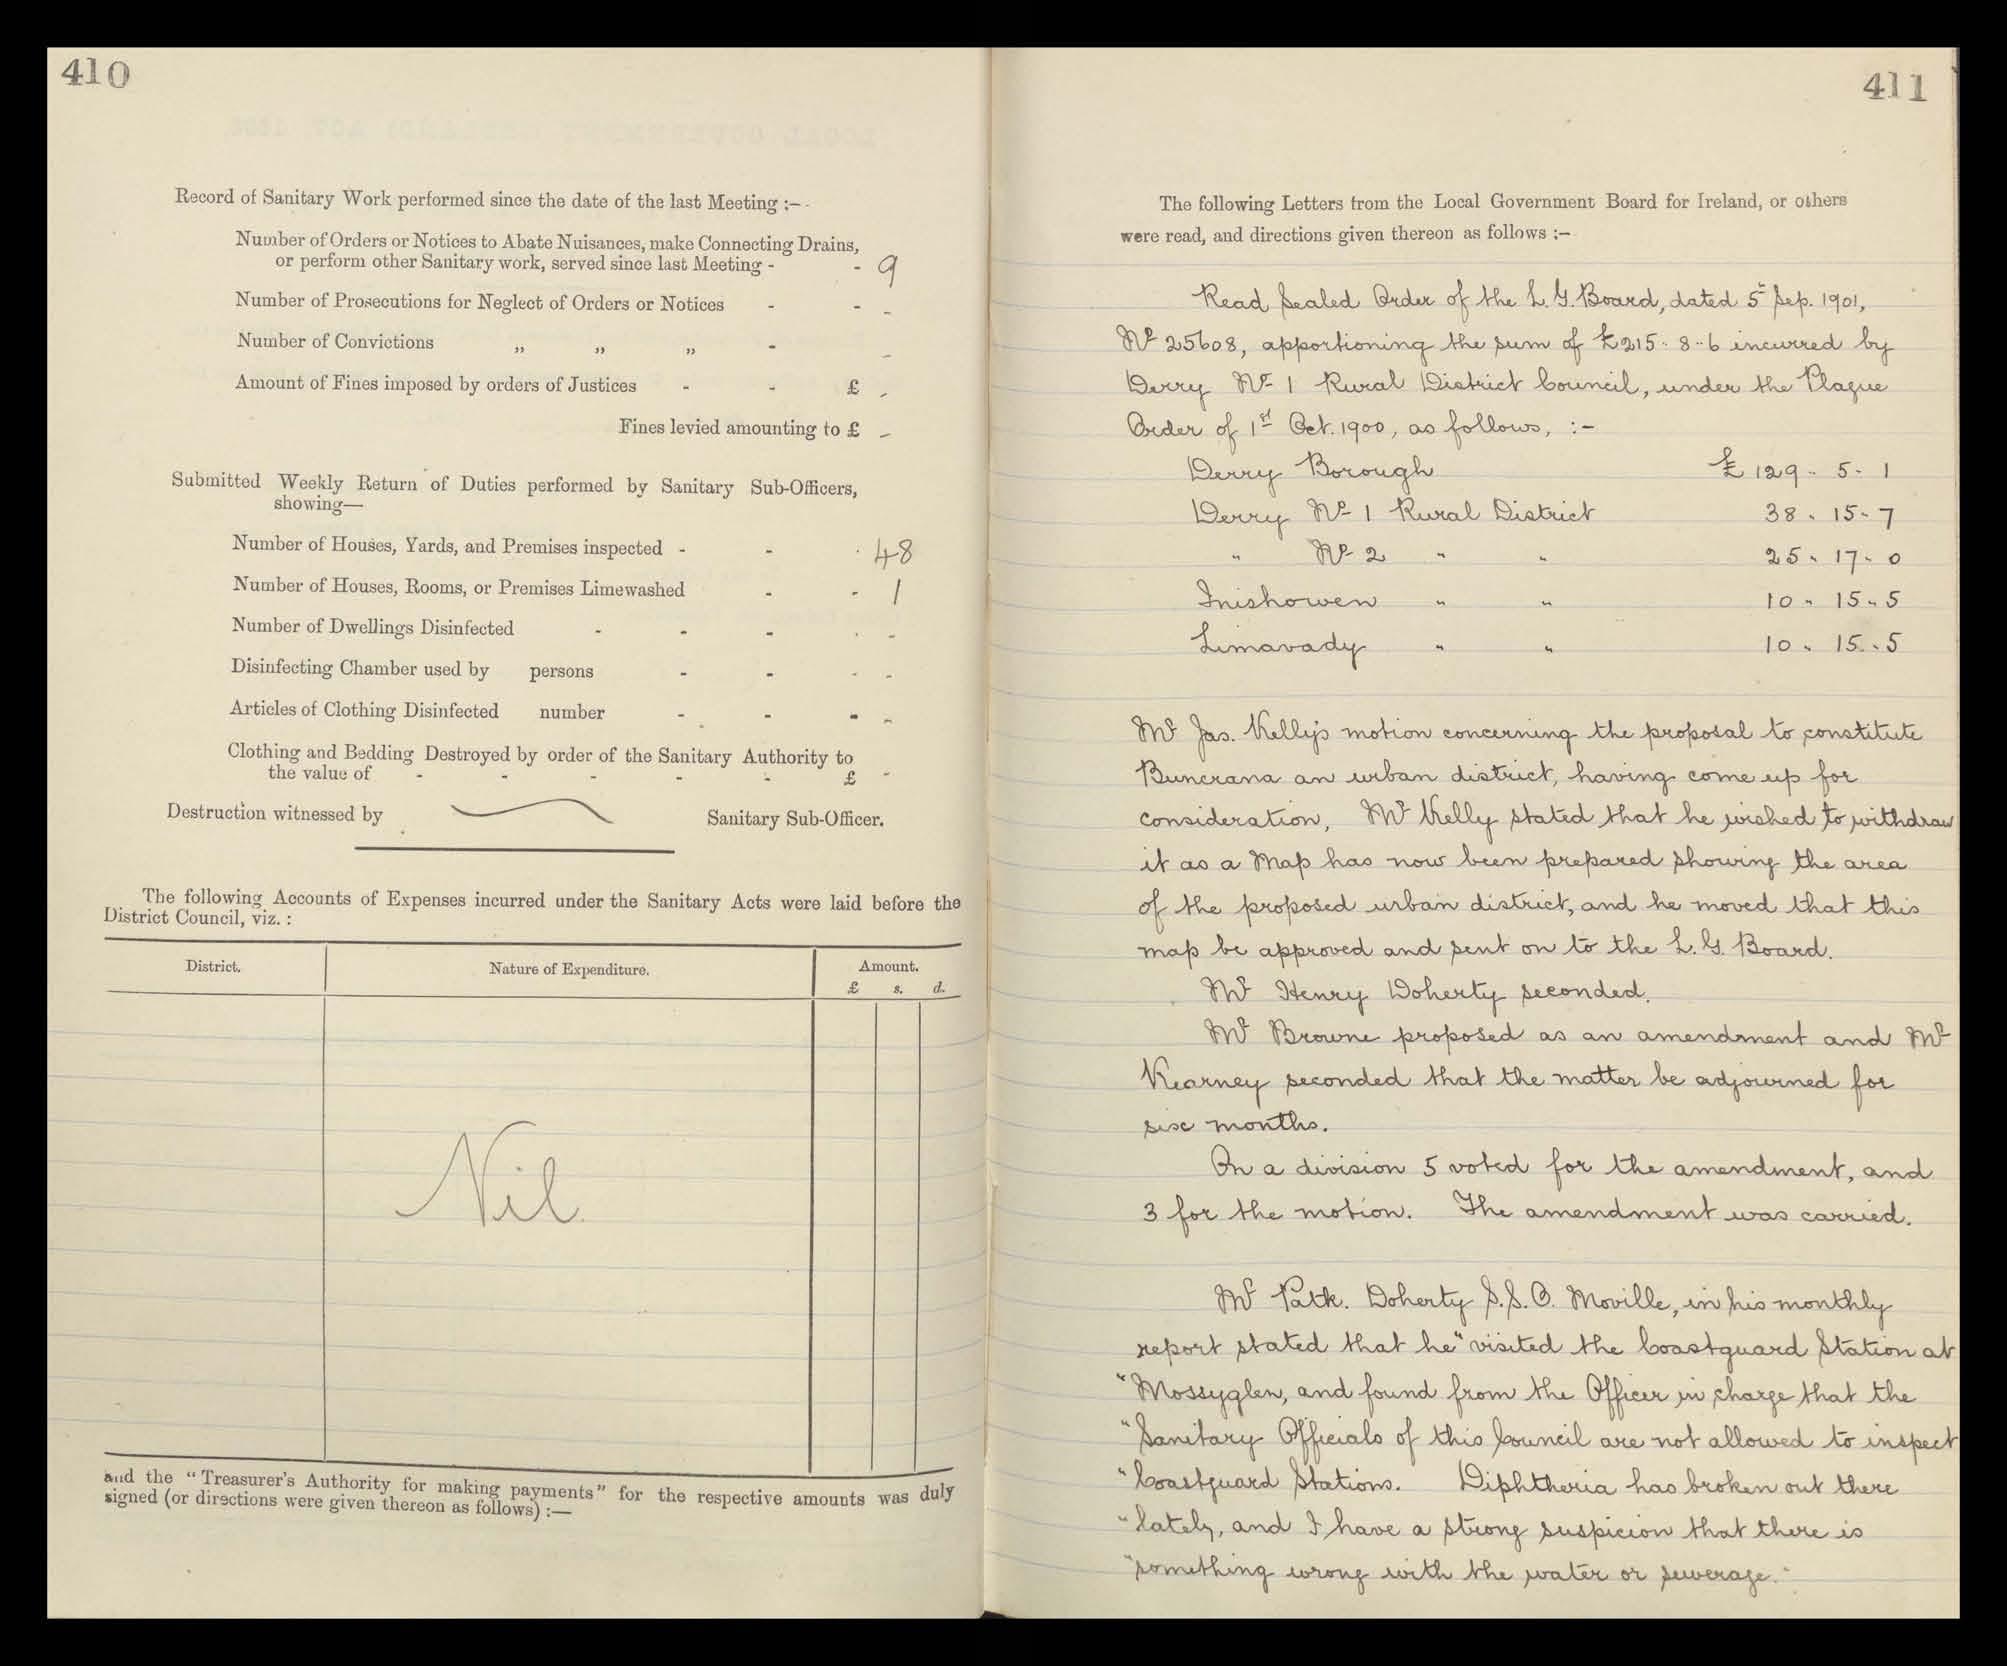 410
Record of Sanitary Work performed since the date of the last Meeting :—
Number of Orders or Notices to Abate Nuisances, make Connecting Drains,
or perform other Sanitary work, served since last Meeting - - 9
Number of Prosecutions for Neglect of Orders or Notices - - -
Number of Convictions „ „ „ - -
Amount of Fines imposed by orders of Justices - - £ -
Fines levied amounting to £ -
Submitted Weekly Return of Duties performed by Sanitary Sub-Officers,
showing—
Number of Houses, Yards, and Premises inspected - - - 48
Number of Houses, Rooms, or Premises Limewashed - - 1
Number of Dwellings Disinfected - - - - -
Disinfecting Chamber used by persons - - - -
Articles of Clothing Disinfected number - - - -
Clothing and Bedding Destroyed by order of the Sanitary Authority to
the value of - - - - - £ -
Destruction witnessed by Sanitary Sub-Officer.
The following Accounts of Expenses incurred under the Sanitary Acts were laid before the
District Council, viz. :
District. Nature of Expenditure. Amount.
£ s. d.
Nil
and the "Treasurer's Authority for making payments" for the respective amounts was duly
signed (or directions were given thereon as follows) :—
411
The following Letters from the Local Government Board for Ireland, or others
were read, and directions given thereon as follows :—
Read Sealed Order of the L. G. Board, dated 5th Sep. 1901,
No 25608, apportioning the sum of £215-8-6 incurred by
Derry No 1 Rural District Council, under the Plague
Order of 1st Oct. 1900, as follows, :-
Derry Borough £129-5-1
Derry No 1 Rural District 38-15-7
" No 2 " " 25-17-0
Inishowen " " 10-15-5
Limavady " " 10-15-5
Mr Jas. Kelly's motion concerning the proposal to constitute
Buncrana an urban district, having come up for
consideration, Mr Kelly stated that he wished to withdraw
it as a Map has now been prepared showing the area
of the proposed urban district, and he moved that this
map be approved and sent on to the L. G. Board.
Mr Henry Doherty seconded.
Mr Browne proposed as an amendment and Mr
Kearney seconded that the matter be adjourned for
six months.
On a division 5 voted for the amendment, and
3 for the motion. The amendment was carried.
Mr Patk. Doherty S.S.O. Moville, in his monthly
report stated that he "visited the Coastguard Station at
"Mossyglen, and found from the Officer in charge that the
"Sanitary Officials of this Council are not allowed to inspect
"Coastguard Stations. Diphtheria has broken out there
"lately, and I have a strong suspicion that there is
"something wrong with the water or sewerage."